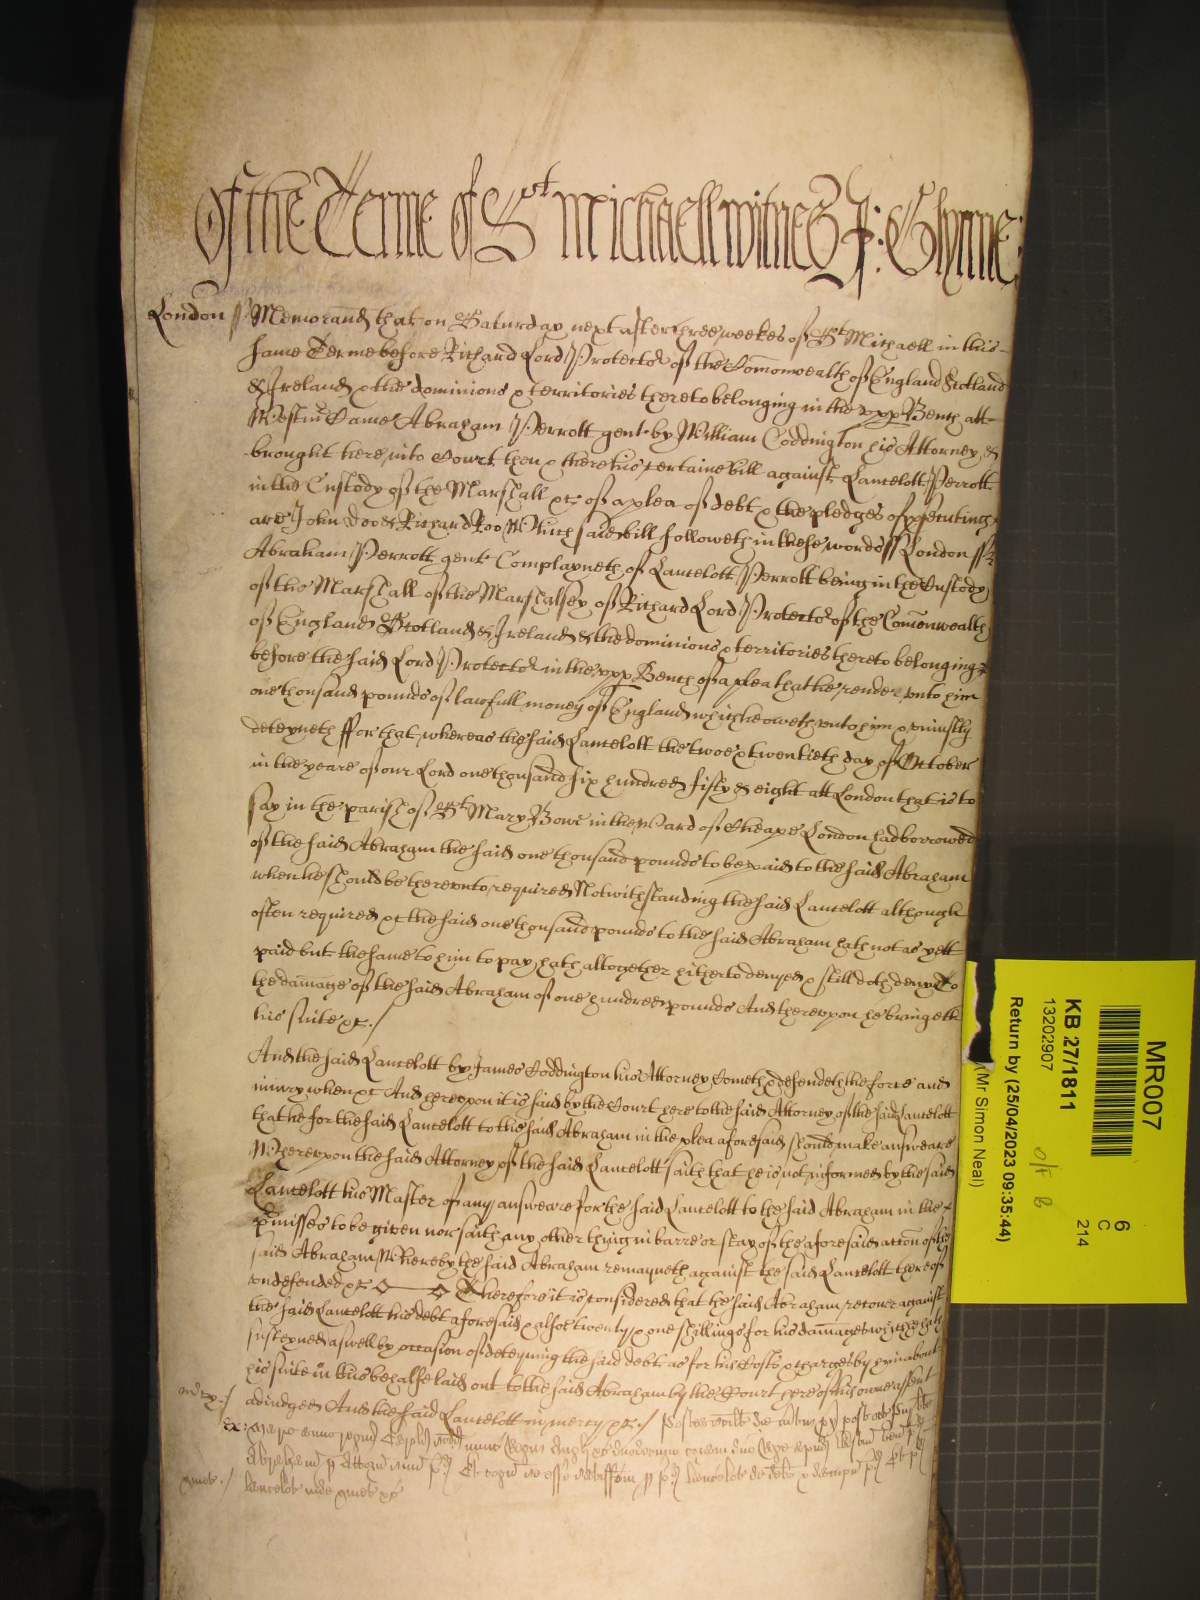 Of the Terme of St Michaell witnes J: Glynne:
London ss Memorand that on Saturday next after three weekes of St Michaell in this
same Terme before Richard Lord Protector of the Comonwealth of England Scotland
& Ireland & the dominions & territories thereto belonging in the upp Bench att
Westmr Came Abraham Perrott gent by William Coddington his Attorney &
brought here into Court then & there his certaine bill against Lancelott Perrott
in the Custody of the Marshall &c of a plea of debt & the pledges of psecuting
are John Doe & Richard Roo Which said bill followeth in these words ss London ss
Abraham Perrott gent Complayneth of Lancelott Perrott being in the Custody
of the Marshall of the Marshalsey of Richard Lord Protector of the Comonwealth
of England Scotland & Ireland & the dominions & territories thereto belonging
before the said Lord Protector in the upp Bench of a plea that he render unto him
one thousand pounds of lawfull money of England which he oweth unto him & uniustly
deteyneth ffor that whereas the said Lancelott the twoe & twentieth day of October
in the yeare of our Lord one thousand six hundred fifty & eight att London that is to
say in the parish of St Mary Bowe in the Ward of Cheape London had borrowed
of the said Abraham the said one thousand pounds to be paid to the said Abraham
when he should be thereunto required Notwithstanding the said Lancelott although
often required &c the said one thousand pounds to the said Abraham hath not as yett
paid but the same to him to pay hath altogether hitherto denyed & still doth deny To
the damage of the said Abraham of one hundred pounds And thereupon he bringeth
his suite &c./
And the said Lancelott by James Coddington his Attorney Cometh & defendeth the force and
iniury when &c And hereupon it is said by the Court here to the said Attorney of the said Lancelott
that he for the said Lancelott to the said Abraham in the plea aforesaid should make answeare
Whereupon the said Attorney of the said Lancelott saith that he is not informed by the said
Lancelott his Master of any answeare for the said Lancelott to the said Abraham in the
pmisses to be given nor saith any other thing in barre or stay of the aforesaid accon of the
said Abraham Whereby the said Abraham remayneth against the said Lancelott thereof
undefended &c Therefore it is considered that the said Abraham recover against
the said Lancelott his debt aforesaid & alsoe twenty & one shillings for his damages which he hath
susteyned aswell by occasion of deteyning the said debt as for his Costs & charges by him about
his suite in this behalfe laid out to the said Abraham by the Court here of his owne assent
adiudged And the said Lancelott in mercy &c./ Postea scilt die
Lancelot inde &c
MR007
6
C
214
KB 27/1811
13202907
Return by (25/04/2023 09:35:44)
(Mr Simon Neal)